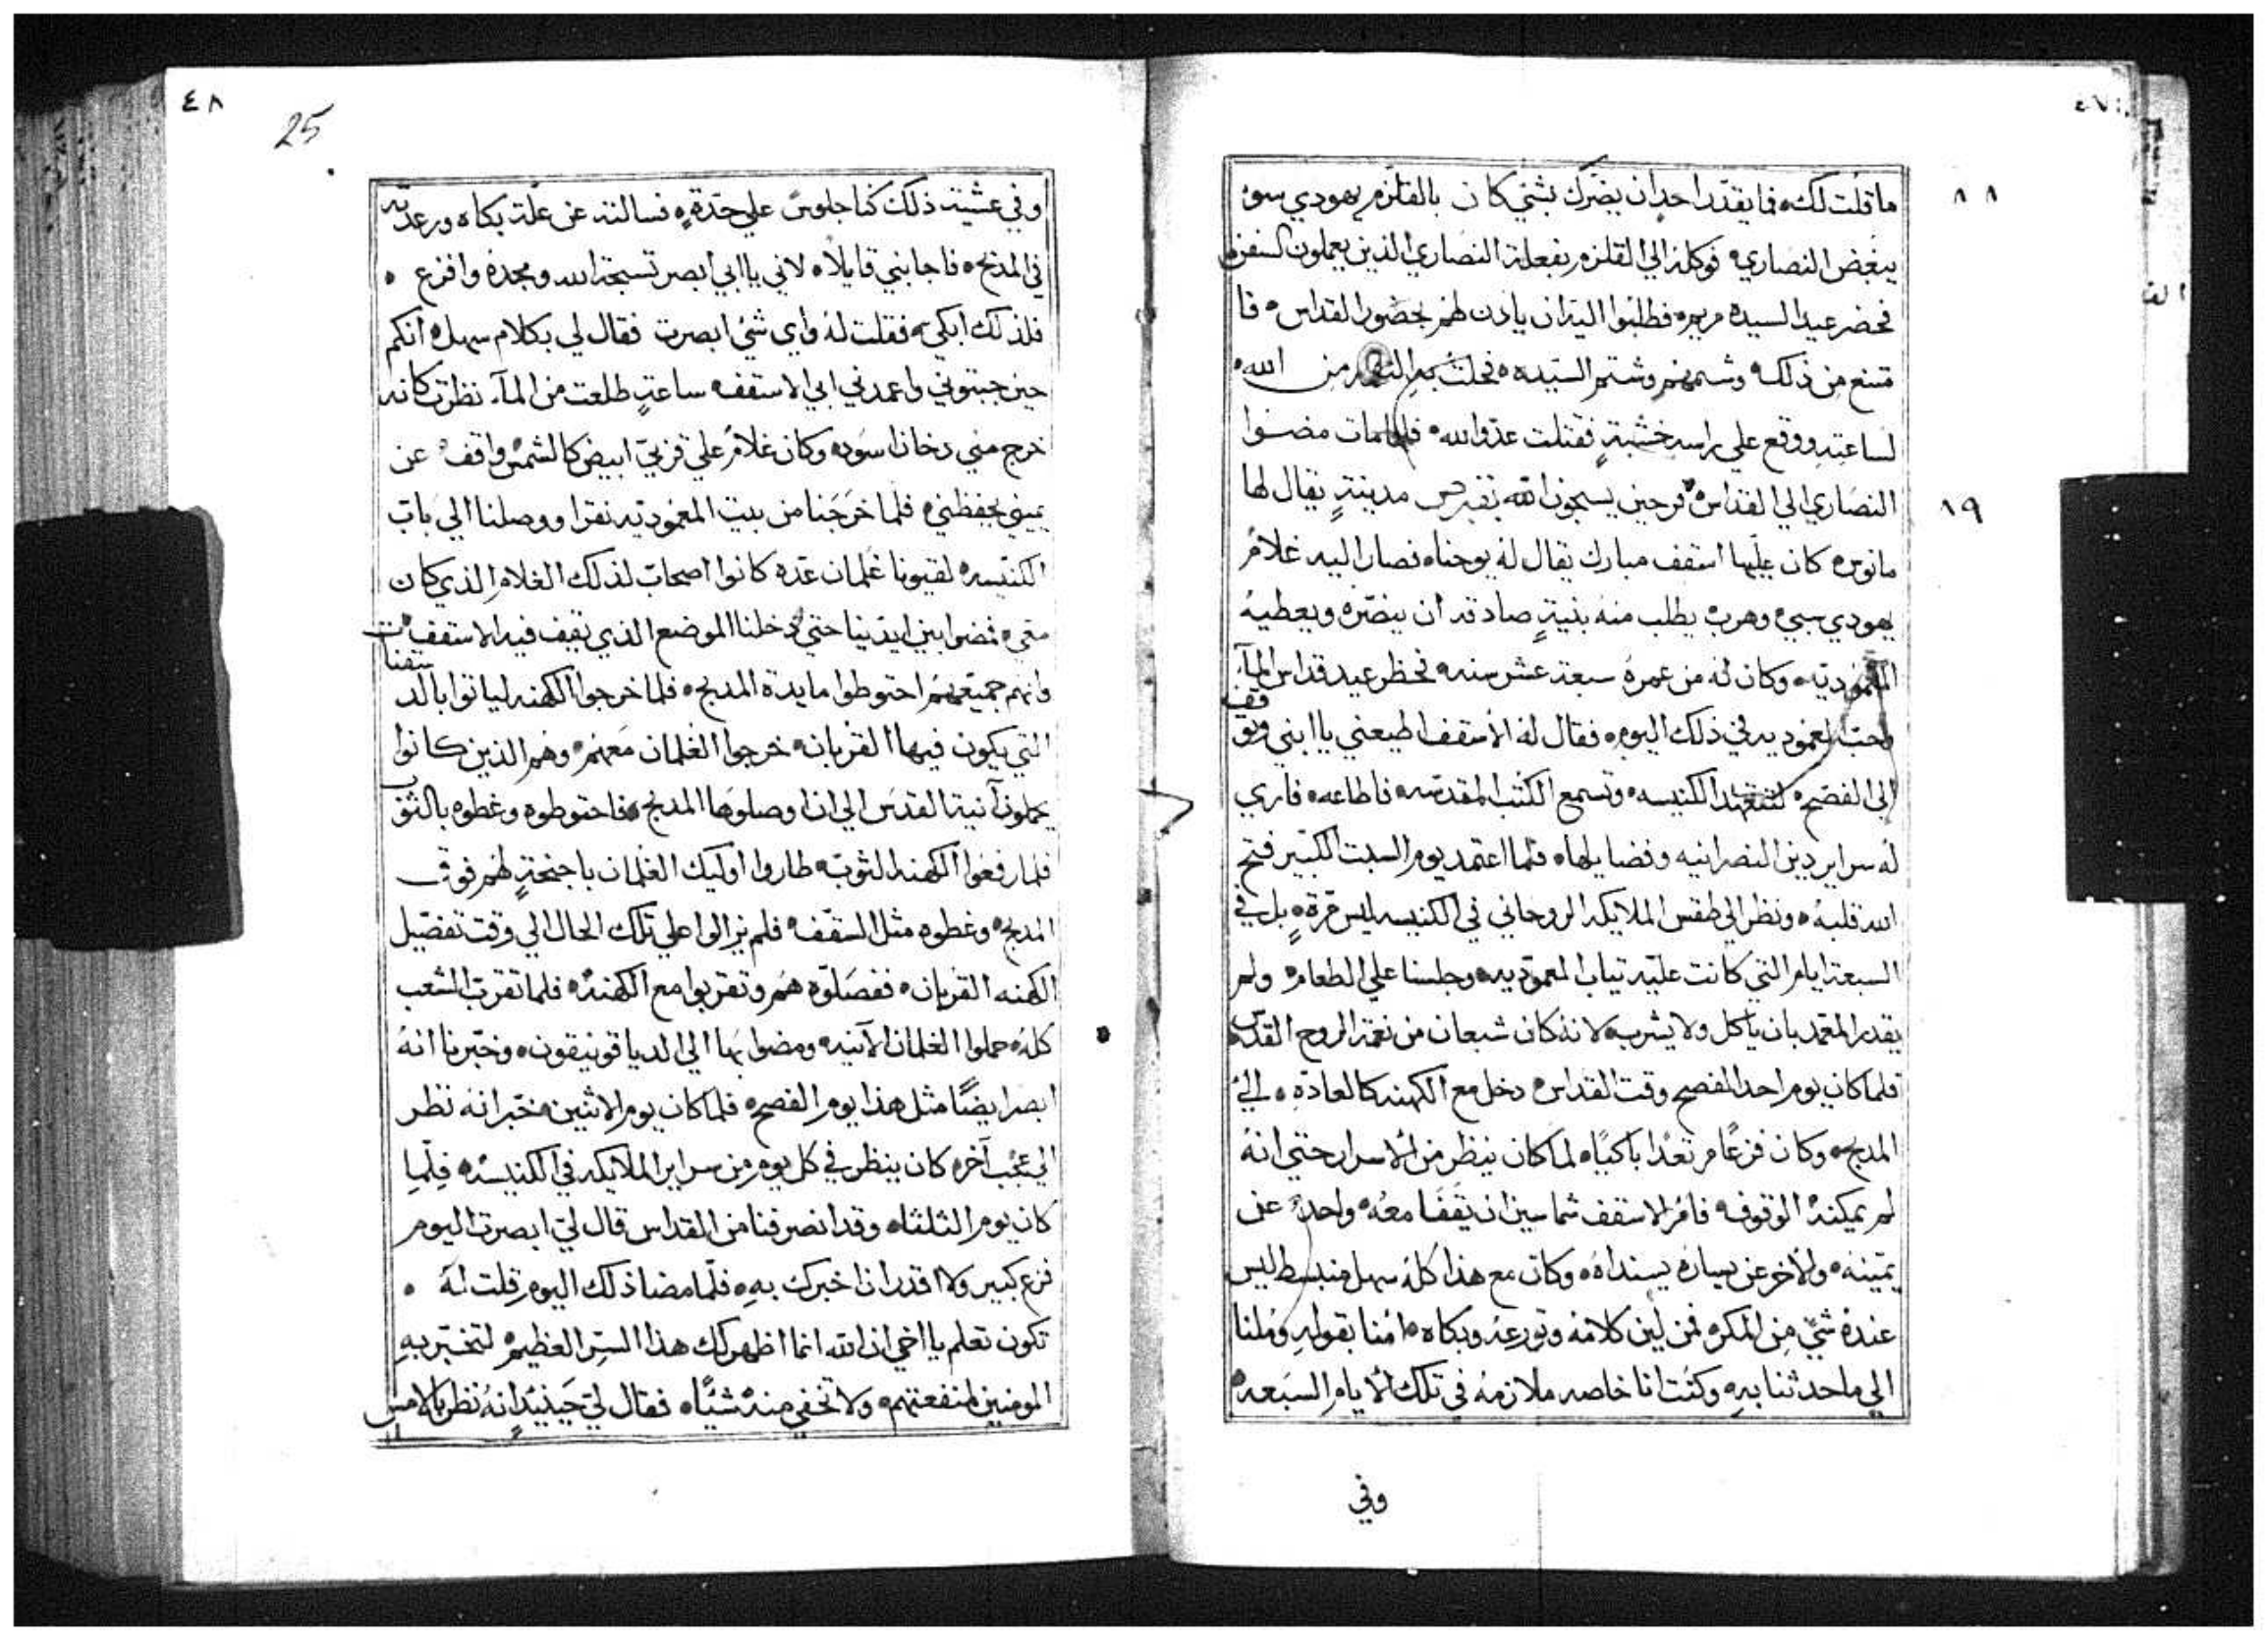 ٤٧
ما قلت لك، فما يقدر احد ان يضرك بشي كان بالقلزم يهودي سوء
١٨
يبغض النصاري، فوكلة الي القلزم بفعلة النصاري الذين يعملون السفن
فحضر عيد السيدة مريم، فطلبوا اليه ان يادن لهم بحضور القداس، فا
متنع من ذلك، وشتمهم وشتم السيده، فحلت به النقمه من الله،
لساعته ووقع علي راسه خشبة فقتلت عدو الله، فلما مات مضوا
النصاري الي القداس، فرحين يسبحون الله، بقبرس مدينة يقال لها
١٩
مانوس، كان عليها اسقف مبارك يقال له يوحنا، فصار اليه غلام
يهودي سبي وهرب، يطلب منه بنية صادقه ان ينصره ويعطيه
المعموديه، وكان له من عمره سبعة عشر سنه، فحظر عيد قداس الماء
واحب المعموديه في ذلك اليوم، فقال له الاسقف اطيعني يا ابني وتوقف
الي الفصح، لتتعهد الكنيسه، وتسمع الكتب المقدسه، فاطاعه، فاري
له سراير دين النصرانيه وفضايلها، فلما اعتمد يوم السبت الكبير فتح
الله قلبه، ونظر الي طقس الملايكه الروحاني في الكنيسه ليس مرة، بل في
السبعة ايام التي كانت عليه تياب المعموديه، وجلسنا علي الطعام، ولم
يقدر المعتمد بان ياكل ولا يشرب، لانه كان شبعان من نعمة الروح القدس
فلما كان يوم احد الفصح وقت القداس، دخل مع الكهنه كالعادة، الي
المدبح، وكان فزعًا مرتعدًا باكيًا، لما كان ينظر من الاسرار حتي انه
لم يمكنه الوقوف، فامر الاسقف شماسين ان يقفا معه، واحد عن
يمينه، والاخر عن يساره يسنداه، وكان مع هذا كله سهل منبسط ليس
عنده شي من المكر، فمن لين كلامه وتورعه وبكاه، امنا بقوله وملنا
الي ما حدثنا به، وكنت انا خاصه ملازمه في تلك الايام السبعه،
وفي
٤٨
25
وفي عشية ذلك كنا جلوس علي حدة، فسالته عن علة بكاه ورعدته
في المدبح، فاجابني قايلًا، لاني يا ابي ابصر تسبحة الله ومجده وافزع،
فلذلك ابكي، فقلت له واي شي ابصرت فقال لي بكلام سهل، انكم
حين جبتوني واعمدني ابي الاسقف، ساعة طلعت من الماء، نظرت كانه
خرج مني دخان اسود، وكان غلام علي قربي ابيض كالشمس واقف عن
يميني يحفظني، فلما خرجنا من بيت المعموديه نقرا ووصلنا الي باب
الكنيسه، لقيونا غلمان عده كانوا اصحاب لذلك الغلام الذي كان
معي، فمضوا بين ايدينا حتي دخلنا الموضع الذي يقف فيه الاسقف،
وانهم جميعهم احتوطوا مايدة المدبح، فلما خرجوا الكهنه لياتوا بالد
التي يكون فيها القربان، خرجوا الغلمان معهم، وهم الذين كانوا
يحملون آنية القدس الي ان اوصلوها المدبح، فاحتوطوه وغطوه بالثوب
فلما رفعوا الكهنه الثوب، طاروا اوليك الغلمان باجنحة لهم فوق
المدبح، وغطوه مثل السقف، فلم يزالوا علي تلك الحال الي وقت تفصيل
الكهنه القربان، ففصلوه هم وتقربوا مع الكهنه، فلما تقرب الشعب
كله، حملوا الغلمان الآنيه، ومضوا بها الي الدياقونيقون، وخبرنا انه
ابصر ايضًا مثل هذا يوم الفصح، فلما كان يوم الاثنين، خبر انه نظر
الي عجب آخر، كان ينظر في كل يوم من سراير الملايكه في الكنيسه، فلما
كان يوم الثلثا، وقد انصرفنا من القداس قال لي ابصرت اليوم
فزع كبير ولا اقدر ان اخبرك به، فلما مضا ذلك اليوم قلت له،
تكون تعلم يا اخي ان الله انما اظهر لك هذا السر العظيم، لتخبر به
المومنين لمنفعتهم، ولا تخفي منه شيًا، فقال لي حينيد انه نظر بالامس